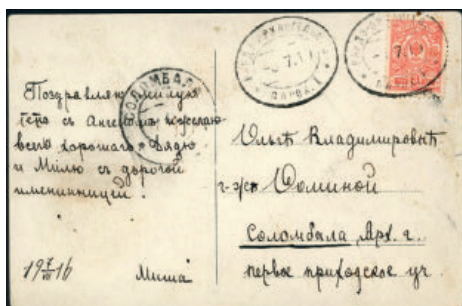 Поздравляю милую
тетю съ Ангеломъ и желаю
всего хорошаго. Дядю
и Милю съ дорогой
именинницей.
19 7/VII 16
Миша
СОЛОМБАЛА
7.1
7.1
Ольгѣ Владимировнѣ
г-жѣ Фоминой
Соломбала Арх. г.
первое приходское уч.